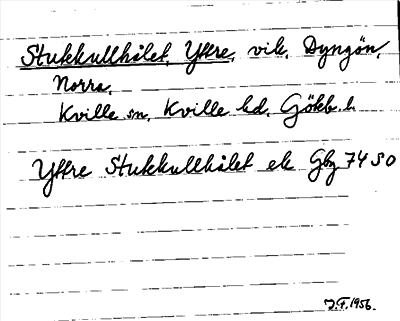 Stukkullhålet, Yttre, vik, Dyngön,
Norra,
Kville sn, Kville hd, Götbb. l.
Yttre Stukkullhålet ek Gbg 74 SO
J.F. 1956.